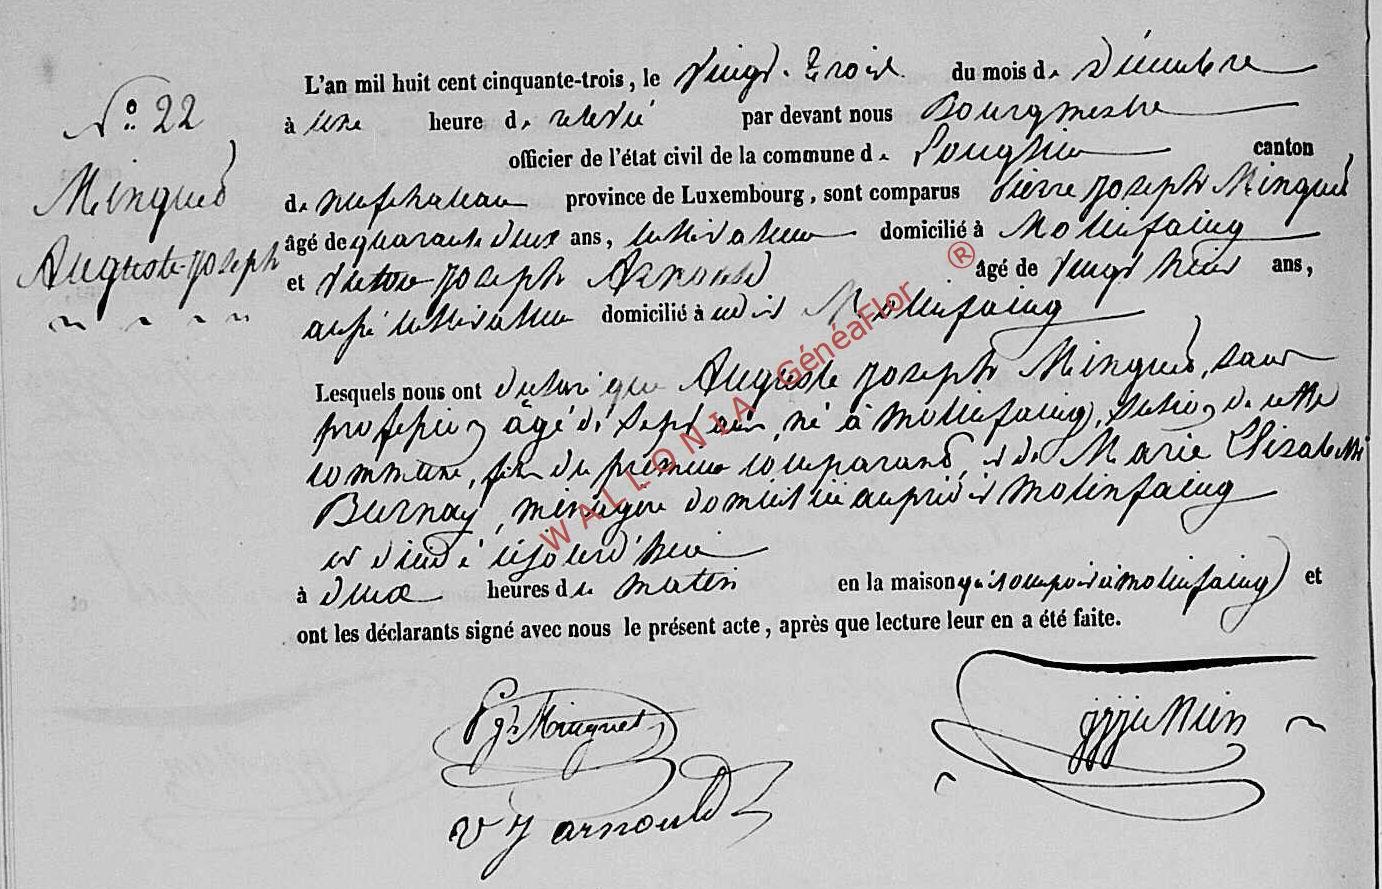 N° 22
Minguet
Auguste-Joseph
L'an mil huit cent cinquante-trois, le vingt-trois du mois de Décembre
à une heure de relevé par devant nous Bourgmestre
officier de l'état civil de la commune de Longlier canton
de neufchateau province de Luxembourg, sont comparus Pierre Joseph Minguet
âgé de quarante deux ans, cultivateur domicilié à Molinfaing
et Victor Joseph Arnould âgé de vingt huit ans,
aussi cultivateur domicilié à Molinfaing
Lesquels nous ont déclaré que Auguste Joseph Minguet, sans
profession âgé de sept ans, né à Molinfaing, section de cette
commune, fils du premier comparant, et de Marie Elisabeth
Burnay, ménagère domiciliée au prédit Molinfaing
est décédé cejourd'hui
à deux heures du matin en la maison qu'il occupoit à molinfaing et
ont les déclarants signé avec nous le présent acte, après que lecture leur en a été faite.
PJ Minguet
V J arnould
WALLONIA GénéaFlor ®